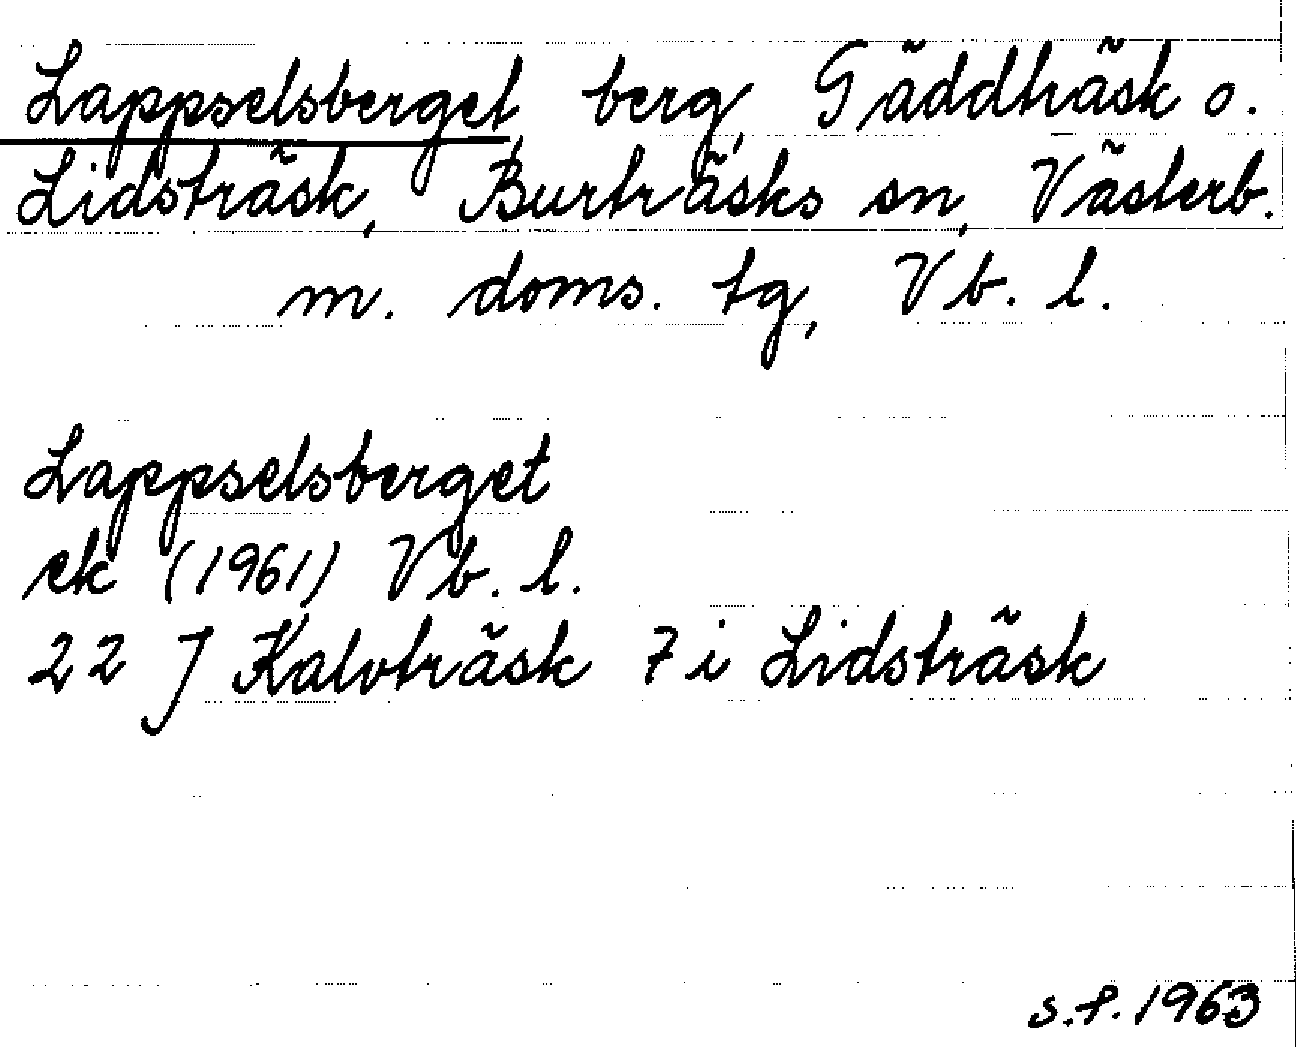 Lappselsberget, berg, Gäddträsk o.
Lidsträsk, Burträsks sn, Västerb.
m. doms. tg, Vb. l.
Lappselsberget
ek (1961) Vb. l.
22 J Kalvträsk 7 i Lidsträsk
s.f. 1963